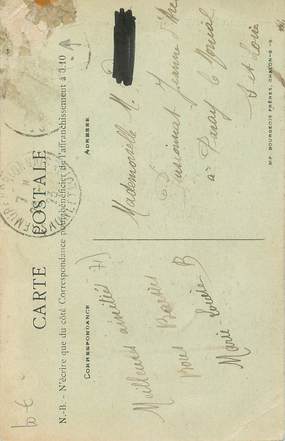 CARTE POSTALE
N.-B. - N'écrire que du côté Correspondance pour bénéficier de l'affranchissement à 0.10
CORRESPONDANCE
ADRESSE
Meilleures amitiés
Bons Baisers
Marie-Louise B
Mademoiselle M.
Pensionnat Jeanne d'Arc
à Paray le Monial
S et Loire
IMP. BOURGEOIS FRÈRES, CHALON-S-S